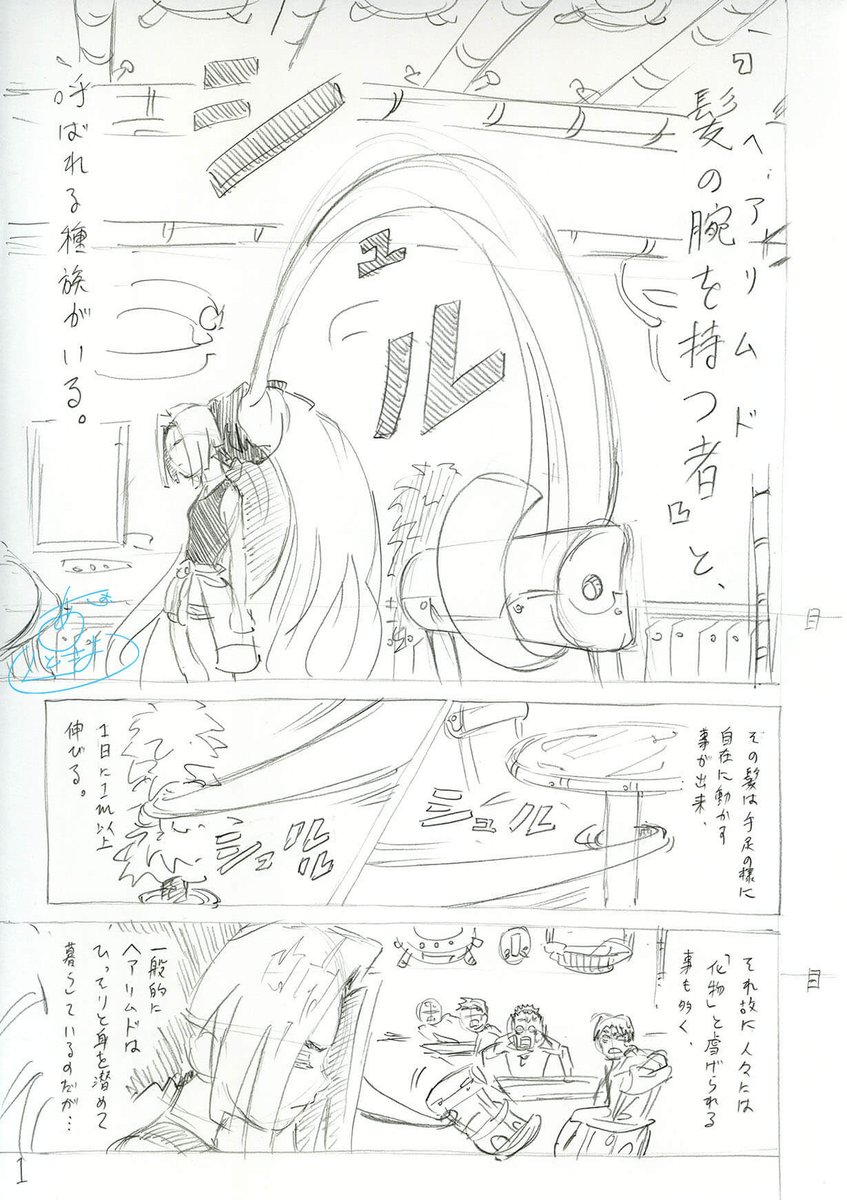 ヘアリムド
『髪の腕を持つ者』と、
呼ばれる種族がいる。
シュル
その髪は手足の様に
自在に動かす
事が出来、
シュル
シュルル
1日に1m以上
伸びる。
それ故に人々には
「化物」と虐げられる
事も多く、
一般的に
ヘアリムドは
ひっそりと身を潜めて
暮らしているのだが…
1